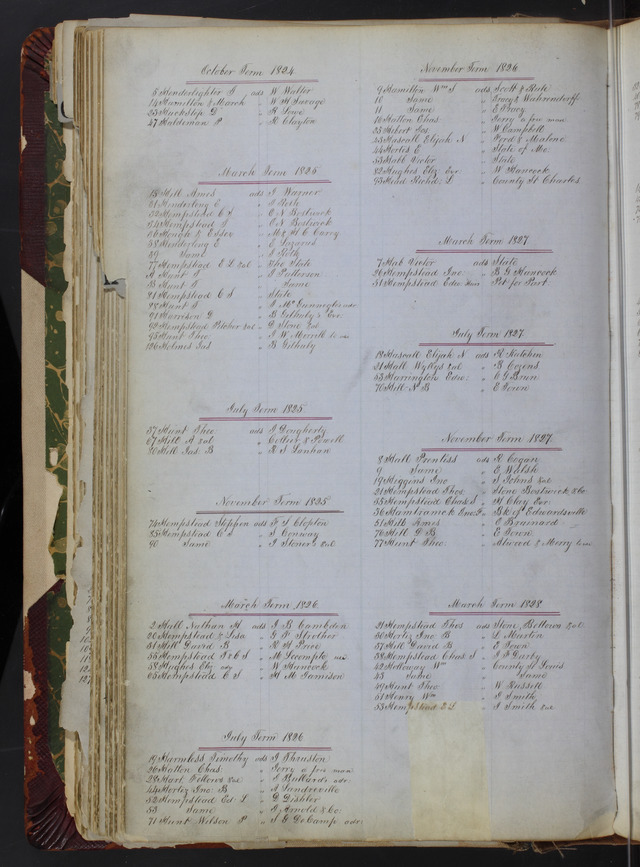 October Term 1824
5 Henderlighter G ads W Walter
14 Hamilton & March " W H Savage
25 Huckstep D " R Lowe
47 Haldeman P " R Clayton
March Term 1825
18 Hill Ames ads J Warner
31 Henderlong E
32 Hempstead C S " E N Bostwick
34 Hempstead T " E N Bostwick
38 Henderlong E " E Lazarus
49 Same
77 Hempstead E L &al " The State
8 Hunt T " J Patterson
8 Hunt T " Same
81 Hempstead C S " State
88 Hunt T
91 Harrison G " B Gilhuly's Exr
92 Hempstead &al " G Stone &al
95 Hunt Theo " J W Merrill
106 Holmes Jas " B Gilhuly
July Term 1825
37 Hunt Theo ads J Dougherty
67 Hill A &al " Collier & Powell
80 Hill Jas B " R S Lanham
November Term 1825
74 Hempstead Stephen ads F S Clopton
85 Hempstead C S " S Conway
90 Same " J Stoner &al
March Term 1826
2 Hall Nathan H ads J B Camden
20 Hempstead & Lisa " G F Strother
31 Hill David B " R H Price
55 Hempstead T & C S " M Lecompte
58 Hughes Eliz adx " W Hancock
65 Hempstead E S " H M Jamison
July Term 1826
19 Harmless Timothy ads J Thruston
26 Hatton Chas " Jerry a free man
28 Hart Fellows &al " E Bullard's adr
44 Horley Jno B " A Landreville
52 Hempstead Ed L " D Dishler
53 Same " G Arnold & Co
71 Hunt Wilson P " S G DeCamp adr
November Term 1826
9 Hamilton Wm S ads Scott & Rule
10 Same " Tracy & Wahrendorff
11 Same " E Tracy
16 Hatton Chas " Jerry a free man
25 Hibert Jos " W Campbell
43 Hascall Elijah N " Ford & Malone
44 Hortes E " State of Mo
53 Habb Victor " State
82 Hughes Eliz Exx " W Hancock
93 Head Richd L " County St Charles
March Term 1827
7 Hab Victor ads State
26 Hempstead Jno " B G Hancock
31 Hempstead Edw Heirs " Pet for Part
July Term 1827
18 Hascall Elijah N ads R Kitchin
21 Hall Wyllys &al " R Cozens
53 Harrington Edw " C G Brun
70 Hill N B " E Town
November Term 1827
8 Hall Prentiss ads R Cogan
9 Same " E Walsh
19 Higgins Jno " S Johns &al
21 Hempstead Thos " Stone Bostwick & Co
35 Hempstead Chas S " M Choy Exr
36 Hamtramck Jno F " Bk of Edwardsville
51 Hill Ames " E Brainard
76 Hill D B " E Town
77 Hunt Theo " Atwood & Merry
March Term 1828
21 Hempstead Thos ads Stone, Bellows &al
30 Horley Jno B " L Martin
37 Hill David B " E Town
38 Hempstead Chas S " J F Darby
42 Holloway Wm " County St Louis
43 Same " Same
49 Hunt Theo " W Russell
51 Henry Wm " J Smith
53 Hempstead E L " J Smith &al